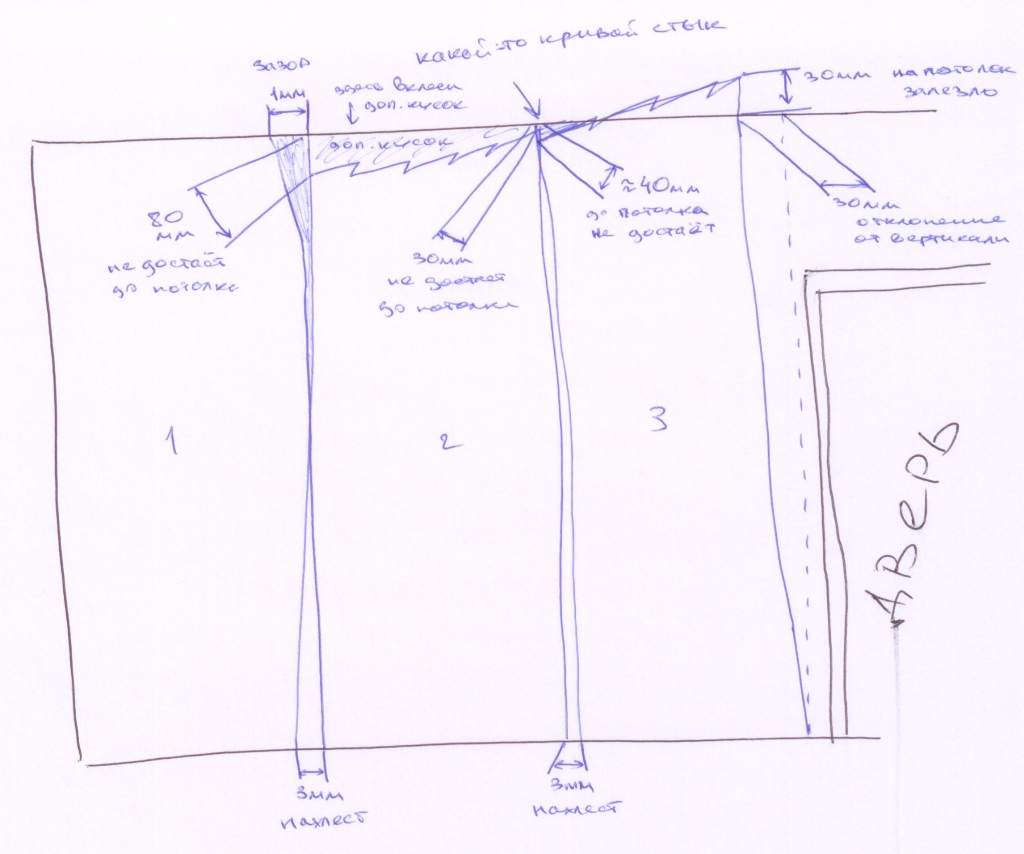 какой-то кривой стык
зазор
1мм
здесь вклеен
доп. кусок
доп. кусок
30мм на потолок
залезло
80
мм
не достаёт
до потолка
30мм
не достает
до потолка
≈40мм
до потолка
не достаёт
30мм
отклонение
от вертикали
1
2
3
Дверь
3мм
нахлест
3мм
нахлест